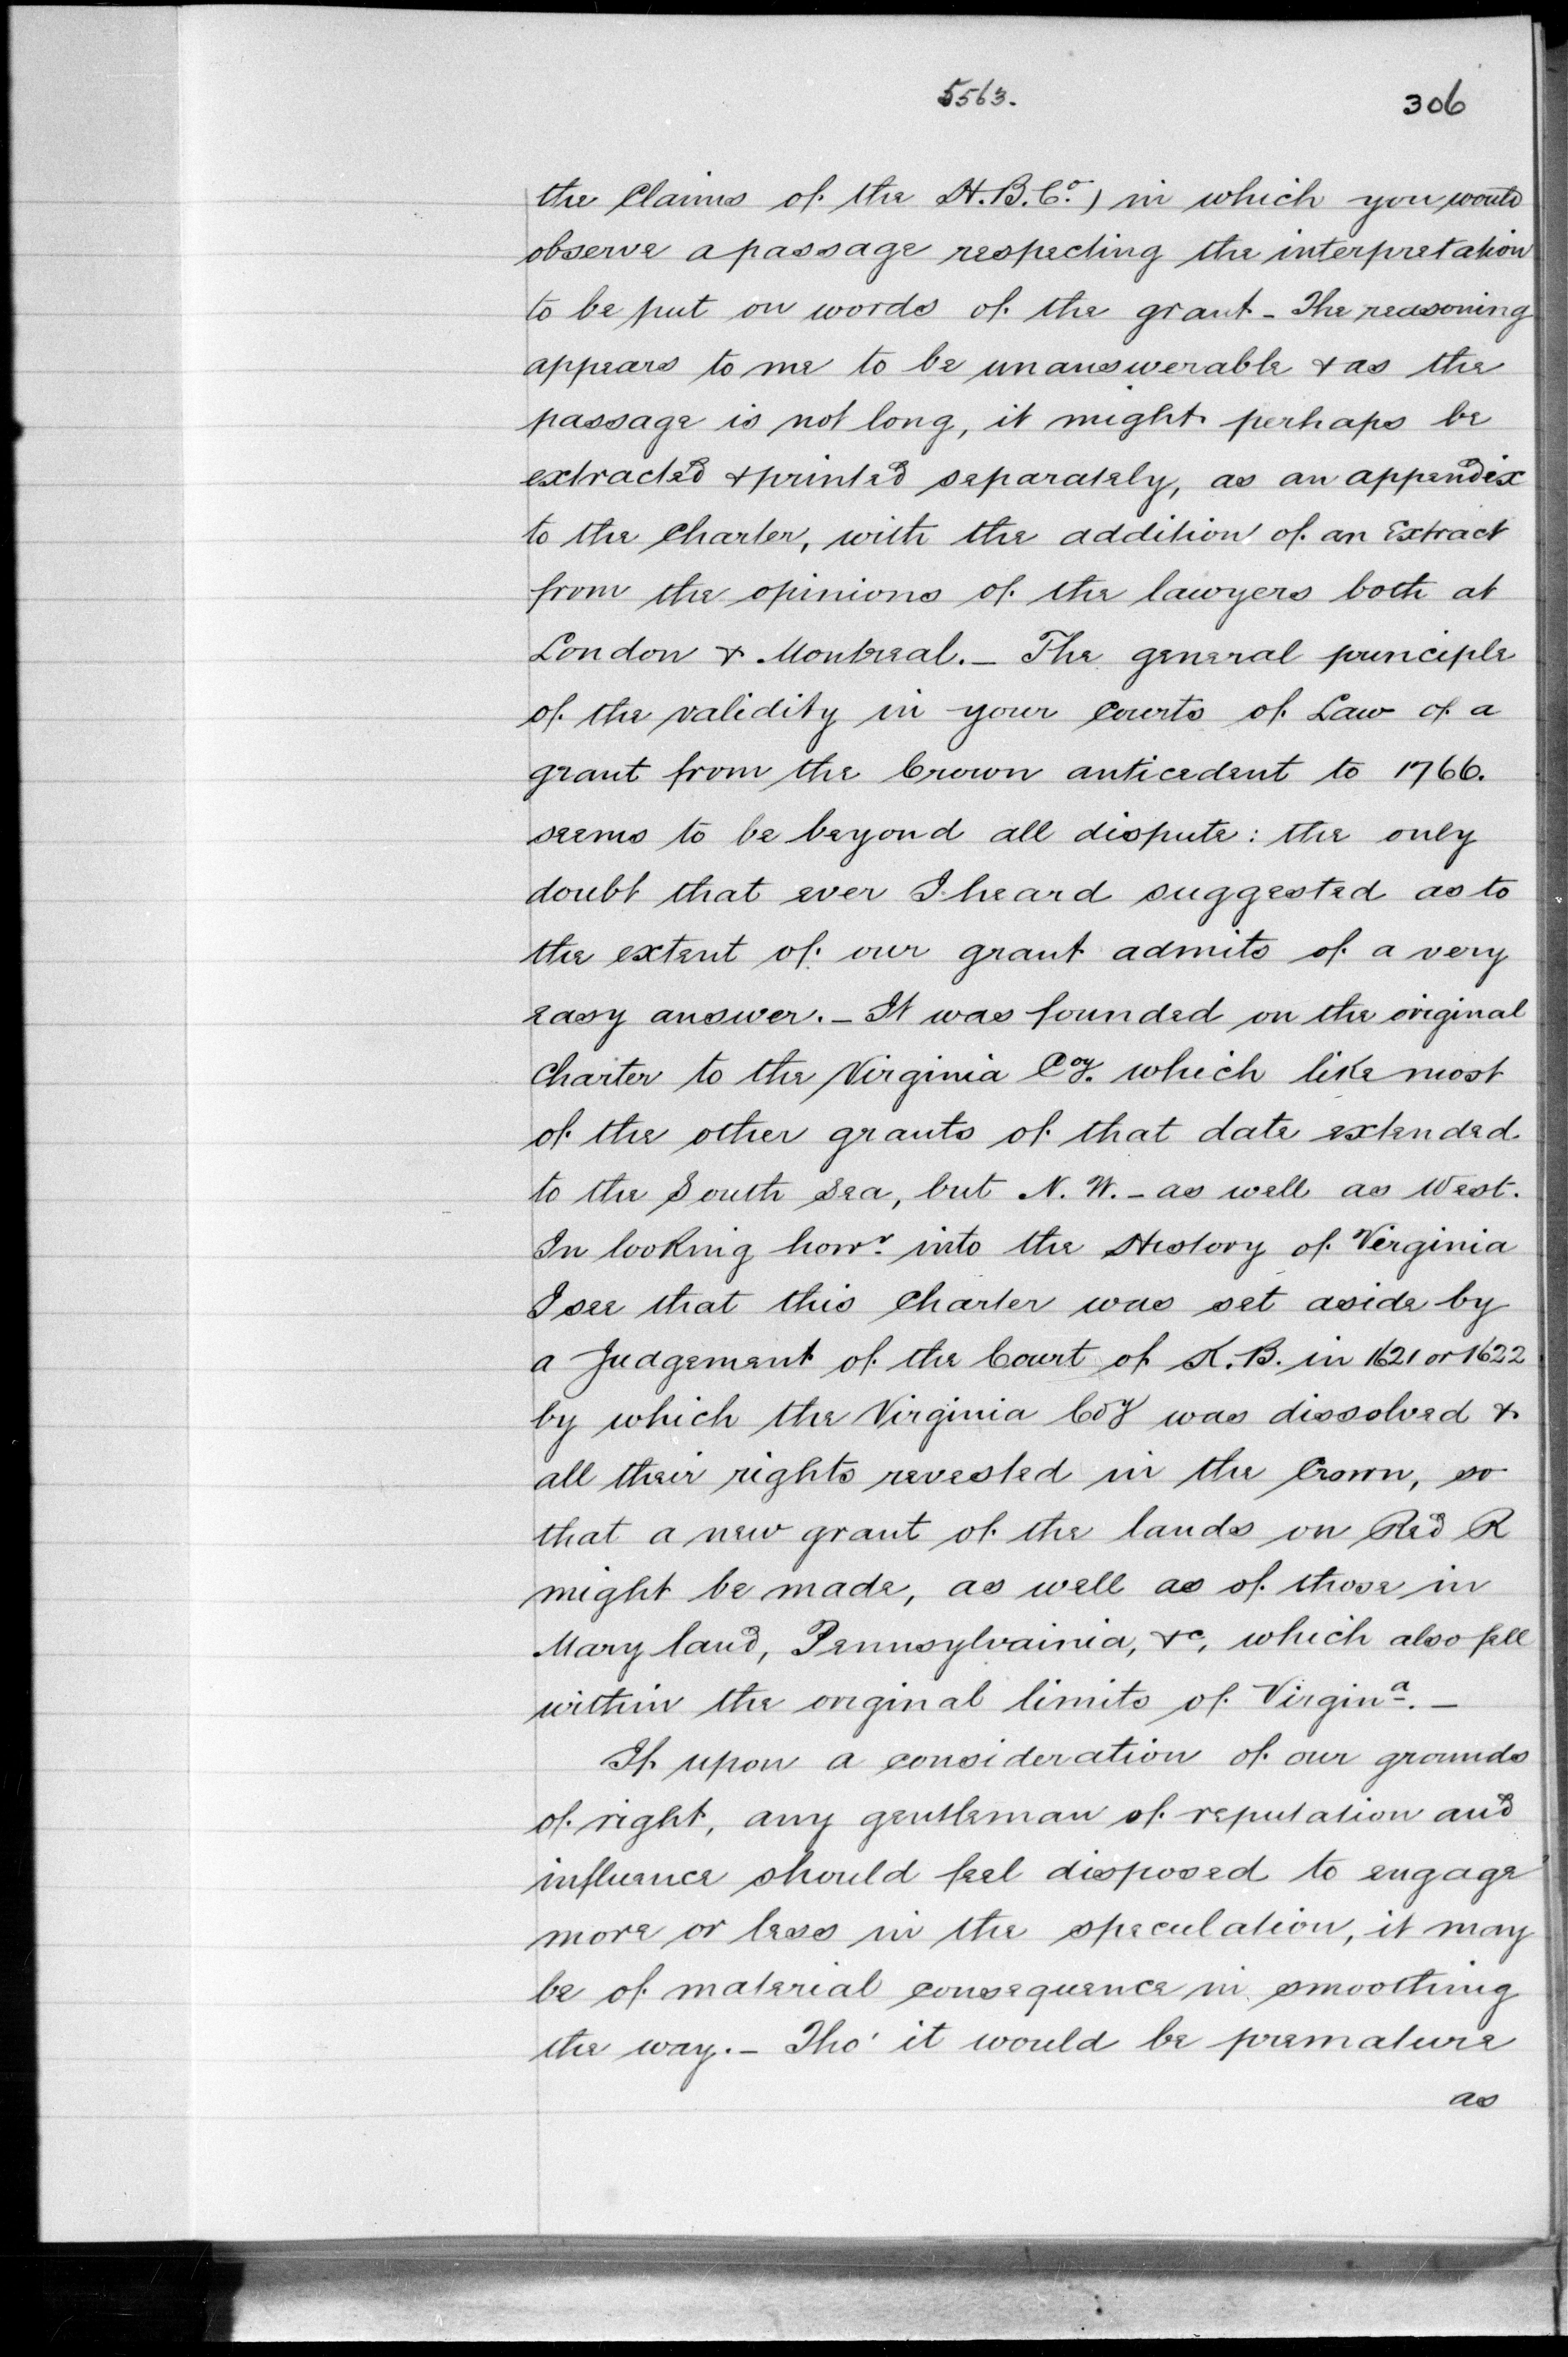 5563.
306
the Claims of the H.B.Co.) in which you would
observe a passage respecting the interpretation
to be put on words of the grant - The reasoning
appears to me to be unanswerable & as the
passage is not long, it might perhaps be
extracted & printed separately, as an appendix
to the Charter, with the addition of an Extract
from the opinions of the lawyers both at
London & Montreal. - The general principle
of the validity in your Courts of Law of a
grant from the Crown anticedent to 1766.
seems to be beyond all dispute: the only
doubt that ever I heard suggested as to
the extent of our grant admits of a very
easy answer. - It was founded on the original
Charter to the Virginia Coy. which like most
of the other grants of that date extended
to the South Sea, but N. W. - as well as West.
In looking howr. into the History of Virginia
I see that this Charter was set aside by
a Judgement of the Court of K.B. in 1621 or 1622
by which the Virginia Coy was dissolved &
all their rights revested in the Crown, so
that a new grant of the lands on Red R
might be made, as well as of those in
Mary land, Pennsylvainia, &c, which also fell
within the original limits of Virgina. -
If upon a consideration of our grounds
of right, any gentleman of reputation and
influence should feel disposed to engage
more or less in the speculation, it may
be of material consequence in smoothing
the way. - Tho' it would be premature
as